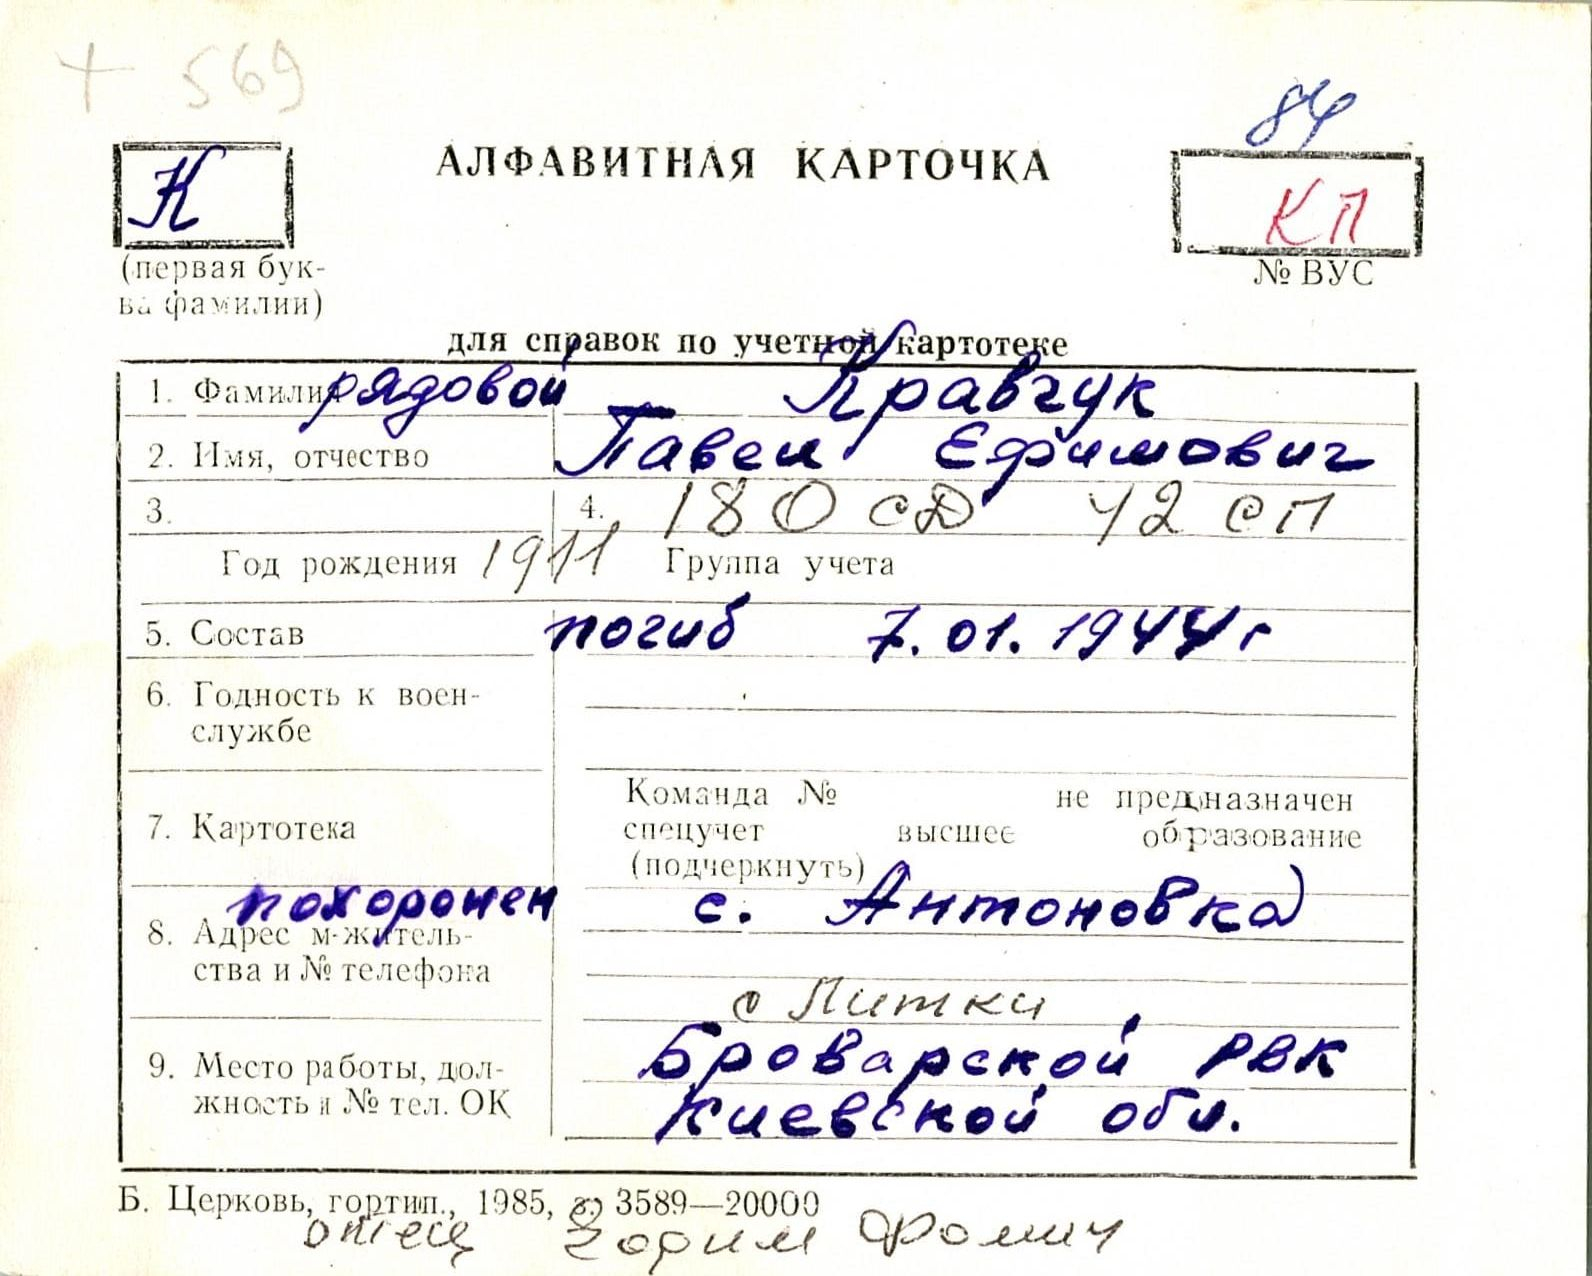 + 569
84
К
АЛФАВИТНАЯ КАРТОЧКА
КП
(первая бук-
ва фамилии)
№ ВУС
для справок по учетной картотеке
1. Фамилия рядовой Кравчук
2. Имя, отчество Павел Ефимович
3. 4. 180 сд 42 сп
Год рождения 1911 Группа учета
5. Состав погиб 7.01.1944 г
6. Годность к воен-
службе
Команда № не предназначен
7. Картотека спецучет высшее образование
(подчеркнуть)
похоронен с. Антоновка
8. Адрес м-житель-
ства и № телефона
с Литки
Броварской РВК
9. Место работы, дол-
жность и № тел. ОК
Киевской обл.
Б. Церковь, гортип., 1985, з. 3589—20000
отец Фомич